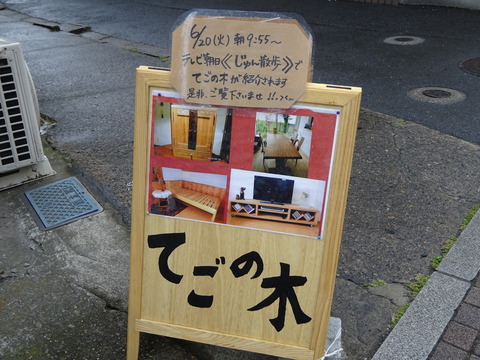 6/20(火)朝9:55〜
テレビ朝日《じゅん散歩》で
てごの木が紹介されます
是非、ご覧下さいませ
てごの木